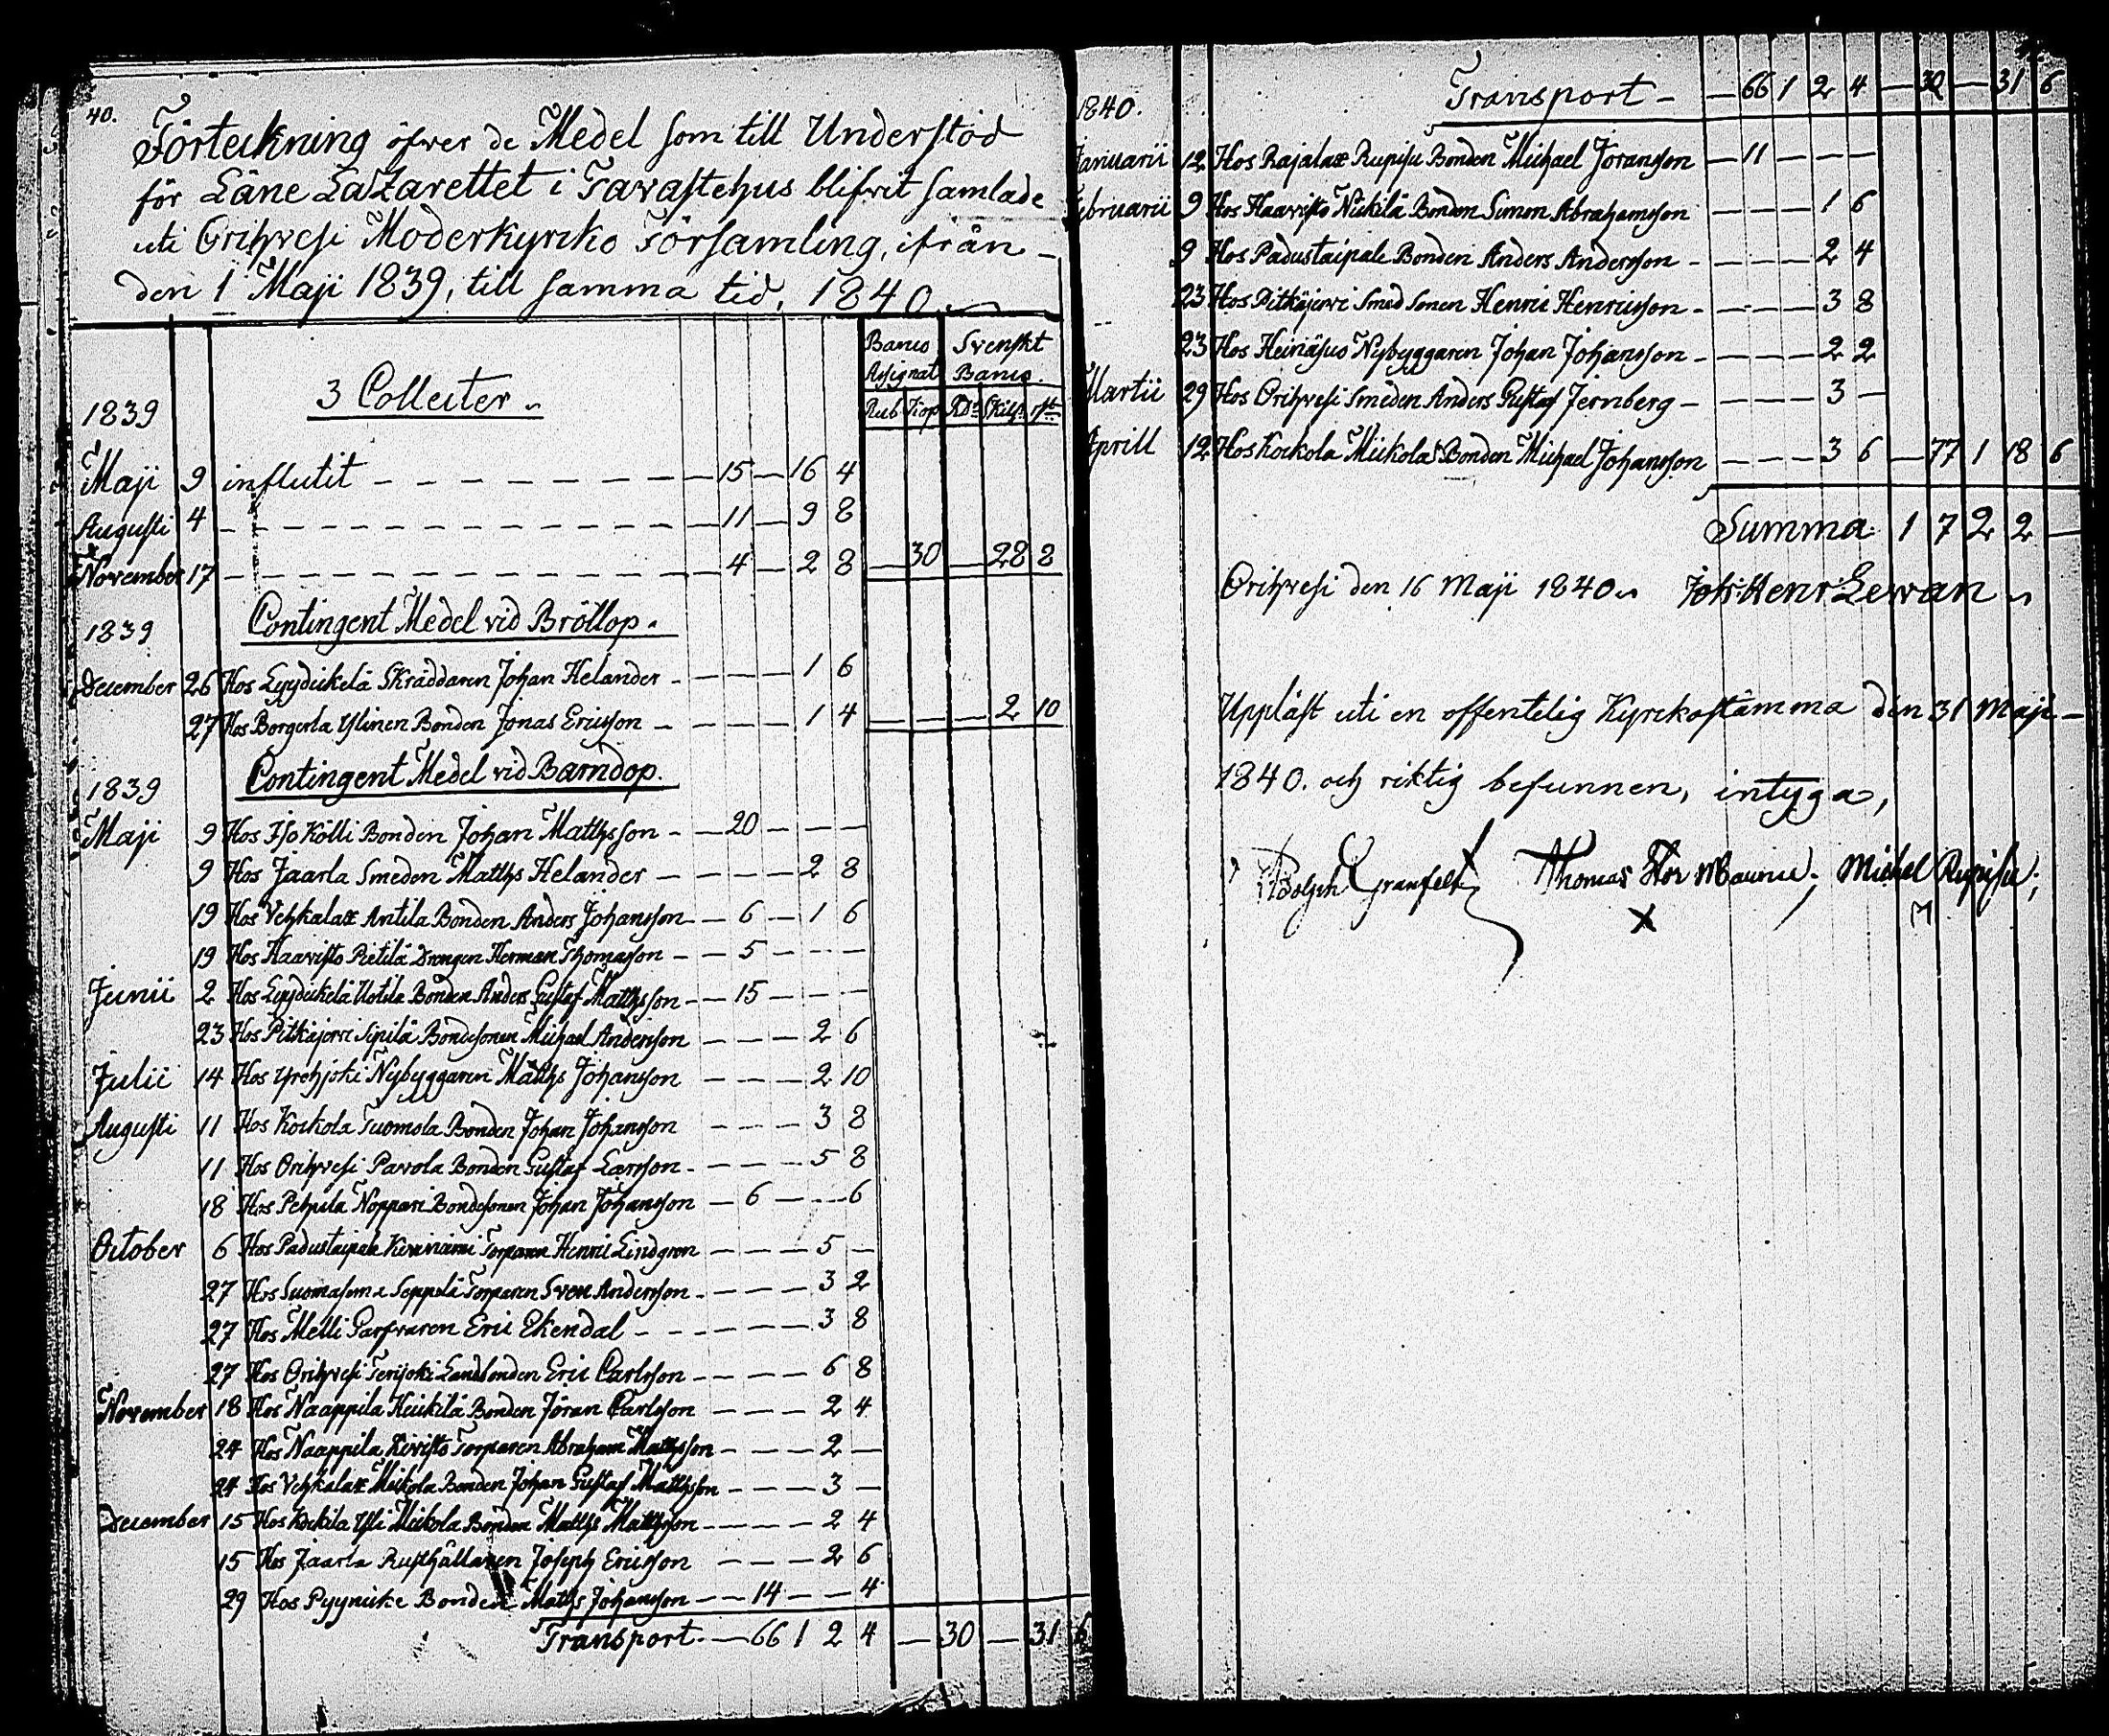 40.
Förteckning öfver de Medel som till Understöd
för Läne Lazarettet i Tavastehus blifvit samlade
uti Orihvesi Moderkyrko Församling, ifrån
den 1 Maji 1839, till samma tid, 1840.
Banco Assignat. Svenskt Banco.
Rub Kop RD Skill rst
3 Collecter
1839
Maji 9 influtit — 15 — 16 4
Augusti 4 — 11 — 9 8
November 17 — 4 — 2 8 — 30 — 28 8
Contingent Medel vid Bröllop.
1839
December 26 Hos Lyydickelä Skräddaren Johan Helander — — — 1 6
27 Hos Borgerla Ylinen Bonden Jonas Ericsson — — — 1 4 — — — 2 10
Contingent Medel vid Barndop.
1839
Maji 9 Hos Iso Kölli Bonden Johan Mathsson — 20 — — —
9 Hos Jaarla Smeden Matths Helander — — — 2 8
19 Hos Vehkalax Antila Bonden Anders Johansson — 6 — 1 6
19 Hos Haavisto Pietilä Drengen Herman Thomasson — 5 — — —
Junii 2 Hos Lyydickelä Uotila Bonden Anders Gustaf Matthsson — 15 — — —
23 Hos Pitkäjervi Sipilä Bondesonen Michael Andersson — — — 2 6
Julii 14 Hos Yrehjoki Nybyggaren Matths Johansson — — — 2 10
Augusti 11 Hos Kockola Tuomola Bonden Johan Johansson — — — 3 8
11 Hos Orihvesi Pavola Bonden Gustaf Larsson — — — 5 8
18 Hos Pehula Noppari Bondesonen Johan Johansson — 6 — — 6
October 6 Hos Padustaipale Torparen Henric Lindgren — — — 5 —
27 Hos Seppälä Torparen Sven Andersson — — — 3 2
27 Hos Melli Garfvaren Eric Ekendal — — — 3 8
27 Hos Orihvesi Terijoki Landbonden Eric Carlsson — — — 6 8
November 18 Hos Naappila Heickilä Bonden Jöran Carlsson — — — 2 4
24 Hos Naappila Kivisto Torparen Abraham Matthsson — — — 2 —
24 Hos Vehkalax Mickola Bonden Johan Gustaf Matthsson — — — 3 —
December 15 Hos Kockila Yli Mickola Bonden Matths Matthsson — — — 2 4
15 Hos Jaarla Rusthållaren Joseph Ericsson — — — 2 6
29 Hos Pyynicke Bonden Maths Johansson — 14 — — 4
Transport — 66 1 2 4 — 30 — 31 6
Transport — 66 1 2 4 — 30 — 31 6
1840.
Januarii 12 Hos Rajalax Rupisu Bonden Michael Joransson — 11 — — —
Februarii 9 Hos Haavisto Nickilä Bonden Simon Abrahamsson — — — 1 6
9 Hos Padustaipale Bonden Anders Andersson — — — 2 4
23 Hos Pitkäjervi Smed Sonen Henric Henricsson — — — 3 8
23 Hos Heinäsuo Nybyggaren Johan Johansson — — — 2 2
Martii 29 Hos Orihvesi Smeden Anders Gustaf Jernberg — — — 3 —
Aprill 12 Hos Kockola Mickola Bonden Michael Johansson — — — 3 6 — 77 1 18 6
Summa 1 7 2 2 —
Orihvesi den 16 Maji 1840. Joh: Henr: Levan
Uppläst uti en offentelig Kyrckostämma den 31 Maji
1840. och riktig befunnen, intyga,
Adolph Granfelt Thomas Michel Rupisu;
X